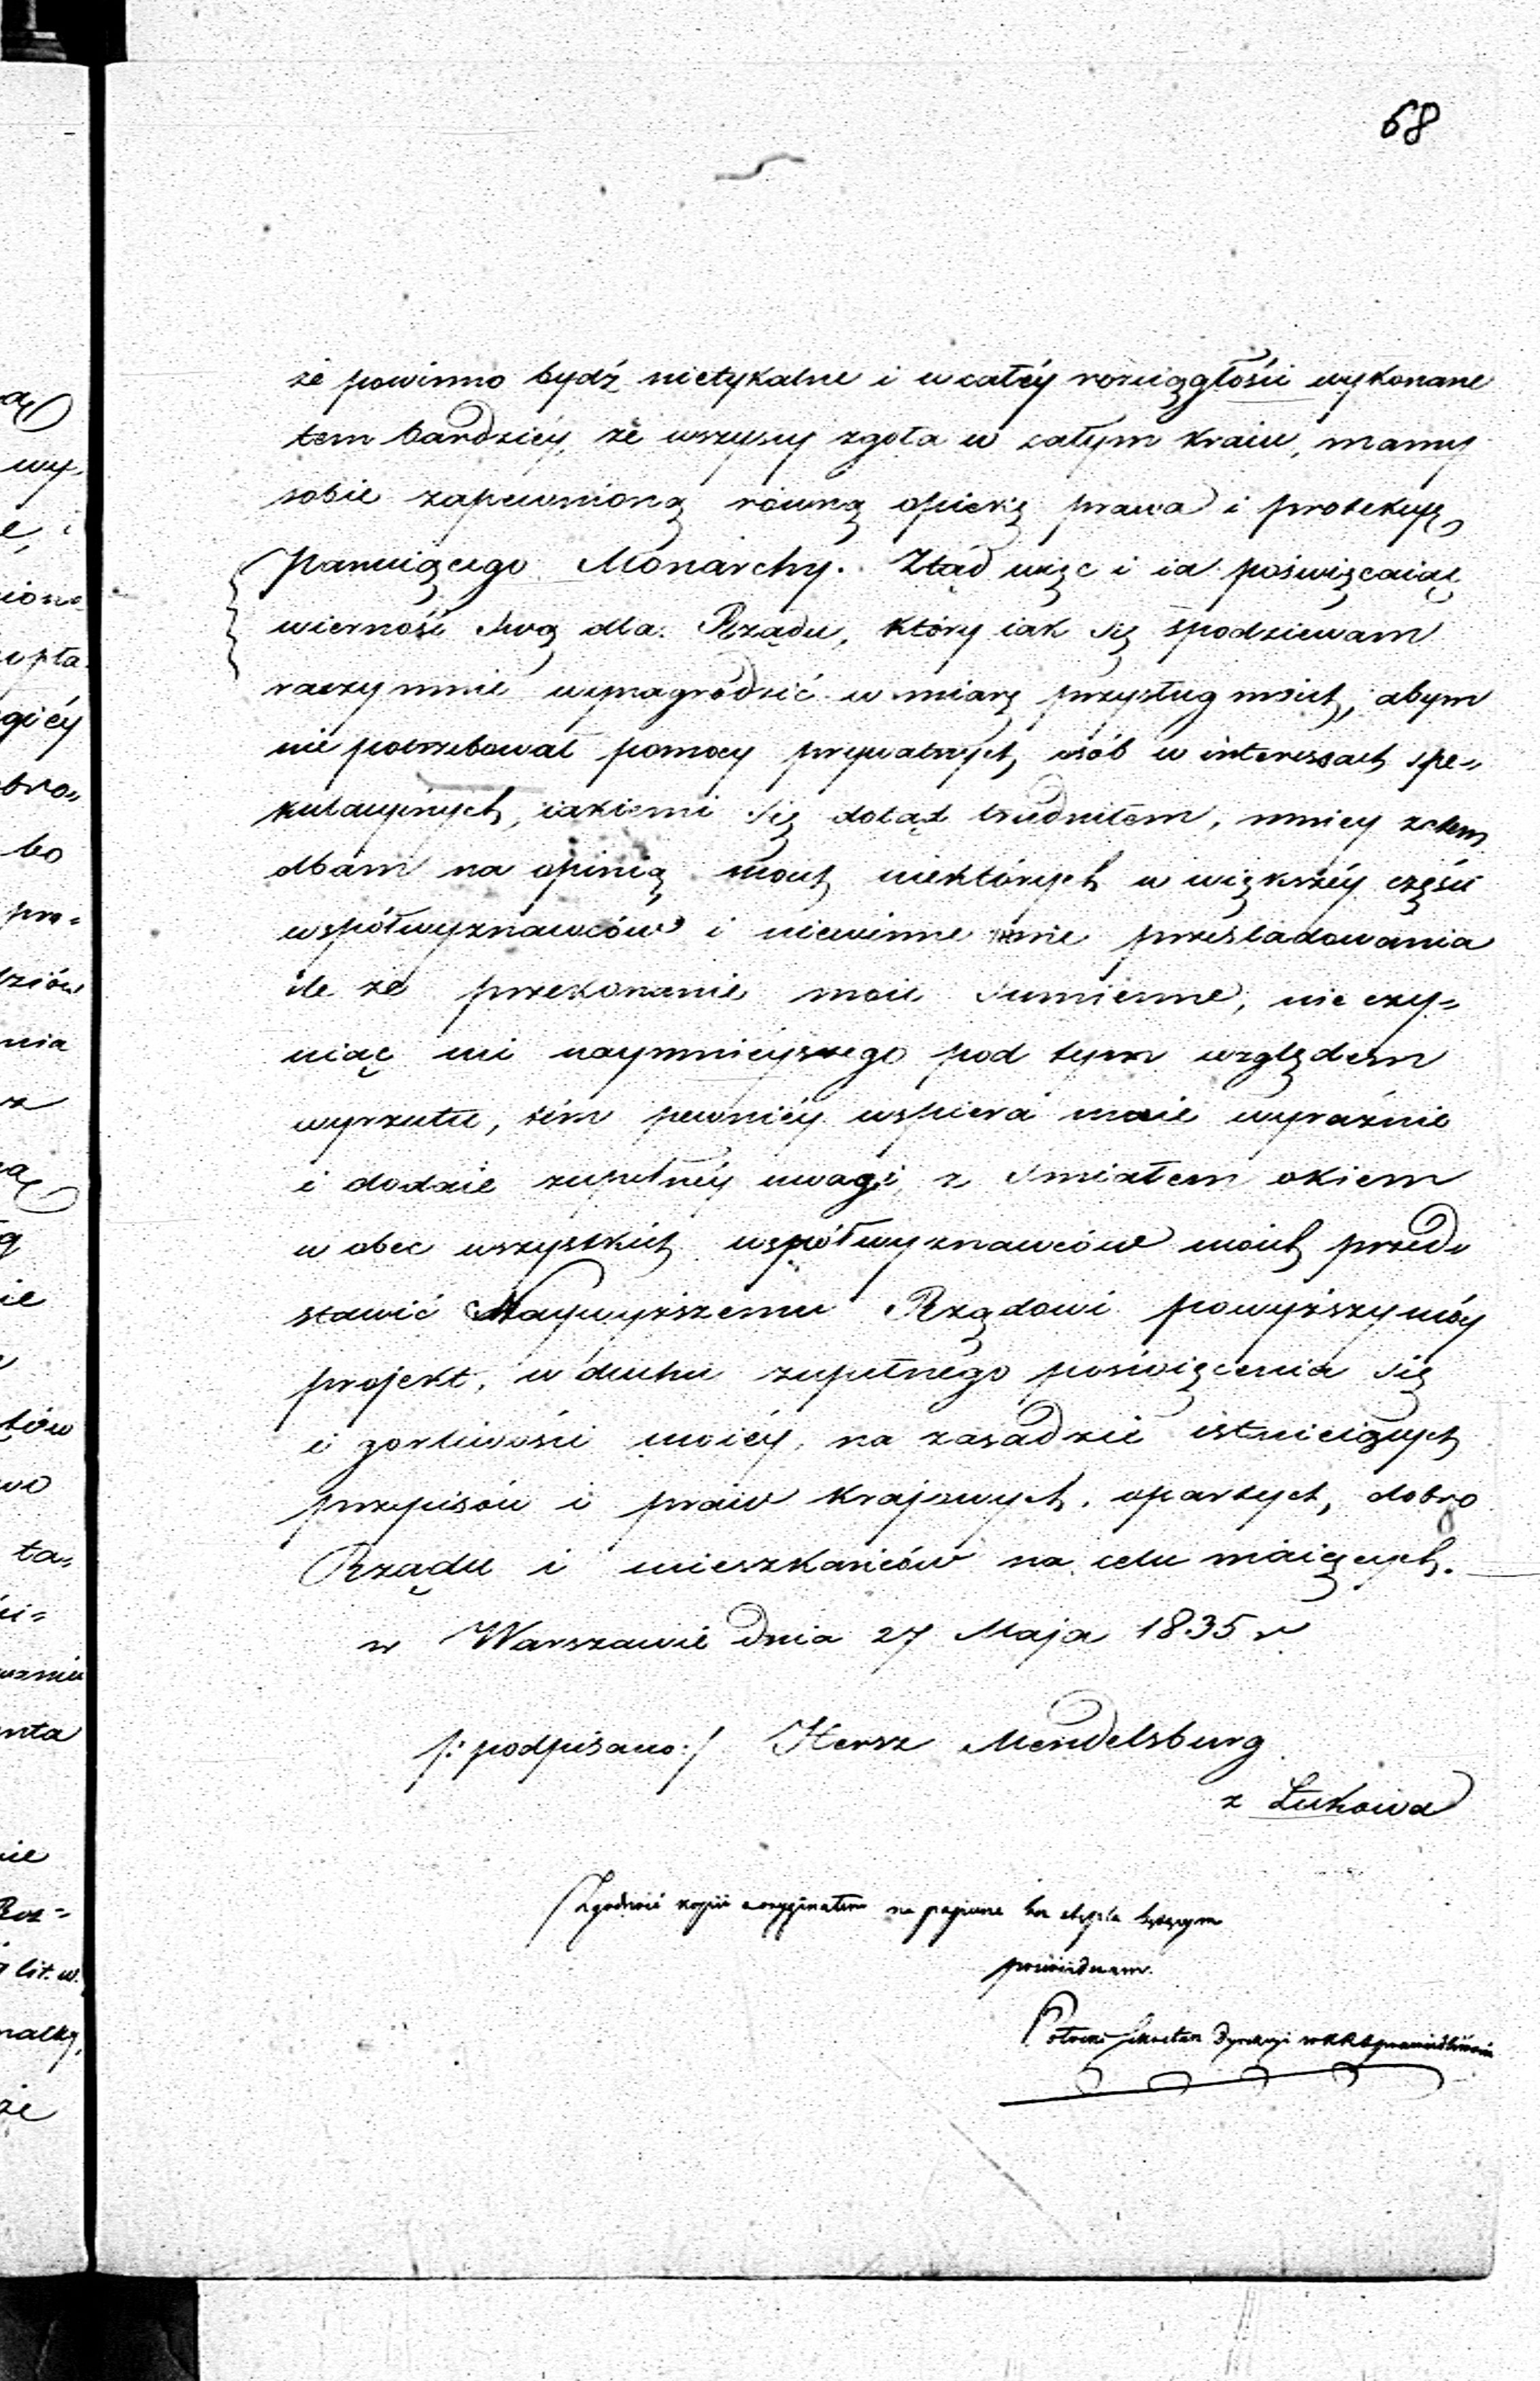 68
że powinno bydź nietykalne i w całéy rozciągłości wykonane
tem bardziéy, że wszyscy zgoła w całym kraiu, mamy
sobie zapewnioną równą opiekę prawa i protekcyę
Panuiącego Monarchy. Ztąd więc i ia poświęcaiąc
wierność swą dla Rządu, który iak się spodziewam
raczy mnie wynagrodzić w miarę przysług moich, abym
nie potrzebował pomocy prywatnych osób w interessach spe=
kulacyinych, iakiemi się dotąd trudniłem, mniey zatem
dbam na opinią moich niektórych w większéy części
współwyznawców i niewinne prześladowania
ile że przekonanie moie sumienne, nie czy=
niąc mi naymnieyszego pod tym względem
wyrzutu, tém pewniéy wspiera moie wyraźnie
i dodaie zupełnéy uwagi, z śmiałem okiem
w obec wszystkich współwyznawców moich przed=
stawić Naywyższemu Rządowi powyższy móy
projekt, w duchu zupełnego poświęcenia się
i gorliwości moiéy, na zasadzie istnieiących
przepisów i praw krajowych, opartych, dobro
Rządu i mieszkańców na celu maiących.
w Warszawie dnia 27 Maja 1835 r
/: podpisano :/ Hersz Mendelsburg
z Łukowa
Zgodność kopii z oryginałem na papierze bez stępla będącym
poświadczam.
Sekretarz Dyrekcyi w KRSprawiedliwości